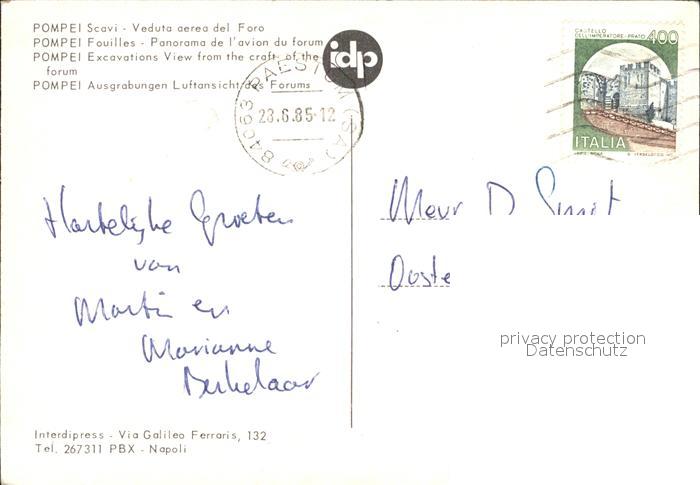 POMPEI Scavi - Veduta aerea del Foro
POMPEI Fouilles - Panorama de l'avion du forum
POMPEI Excavations View from the craft of the
forum
POMPEI Ausgrabungen Luftansicht des Forums
idp
84063 PAESTUM (SA)
23.6.85-12
CASTELLO
DELL'IMPERATORE-PRATO 400
ITALIA
Hartelijke Groeten
van
Martin en
Marianne
Berkelaar
Mevr D Smit
Ooste
privacy protection
Datenschutz
Interdipress - Via Galileo Ferraris, 132
Tel. 267311 PBX - Napoli